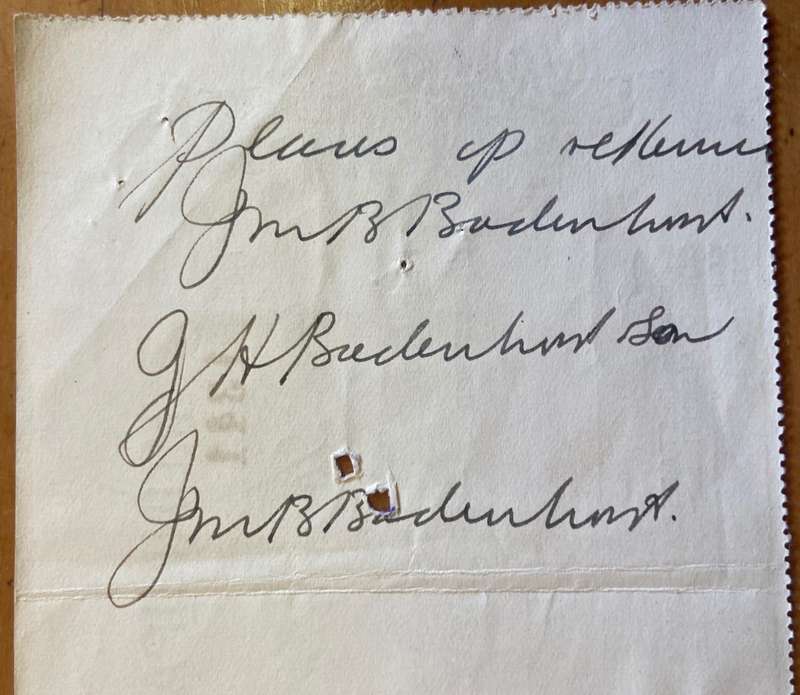 Plaas op rekening
JmB Badenhorst.
G H Badenhorst Sen
JmB Badenhorst.